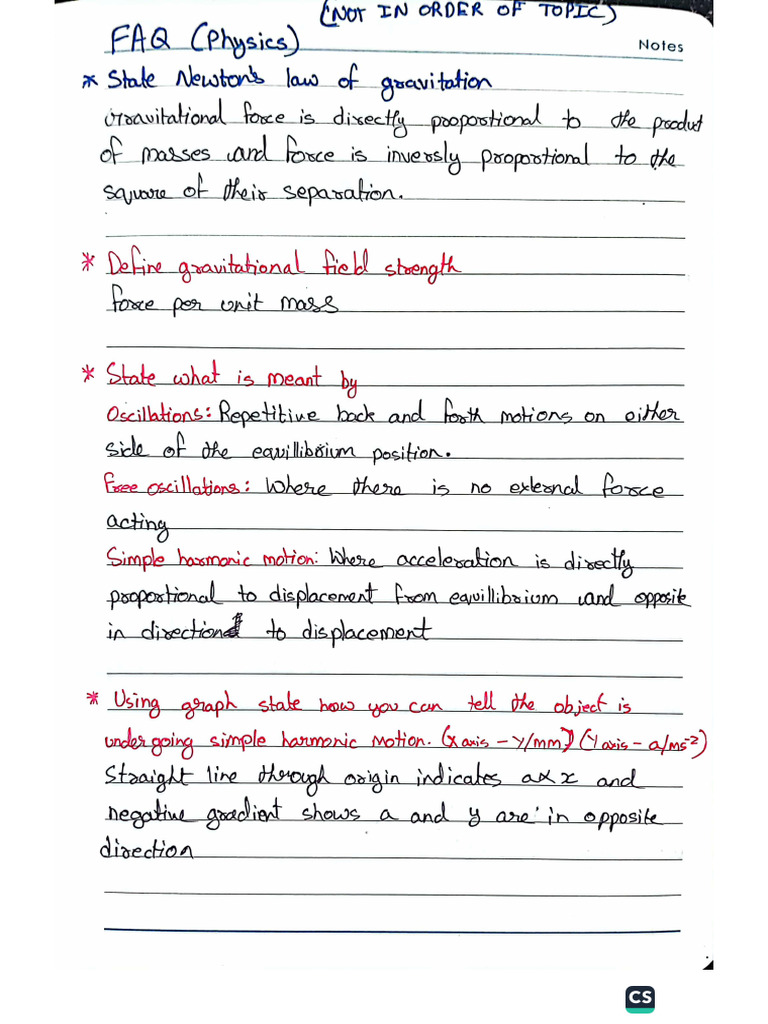 (NOT IN ORDER OF TOPIC)
FAQ (Physics)
Notes
* State Newton's law of gravitation
Gravitational force is directly proportional to the product
of masses and force is inversly proportional to the
square of their separation.
* Define gravitational field strength
force per unit mass
* State what is meant by
Oscillations: Repetitive back and forth motions on either
side of the equillibrium position.
Free oscillations: Where there is no external force
acting
Simple harmonic motion: Where acceleration is directly
proportional to displacement from equillibrium and opposite
in direction to displacement
* Using graph state how you can tell the object is
undergoing simple harmonic motion. (x axis - y/mm) (y axis - a/ms⁻²)
Straight line through origin indicates a∝x and
negative gradient shows a and y are in opposite
direction
CS